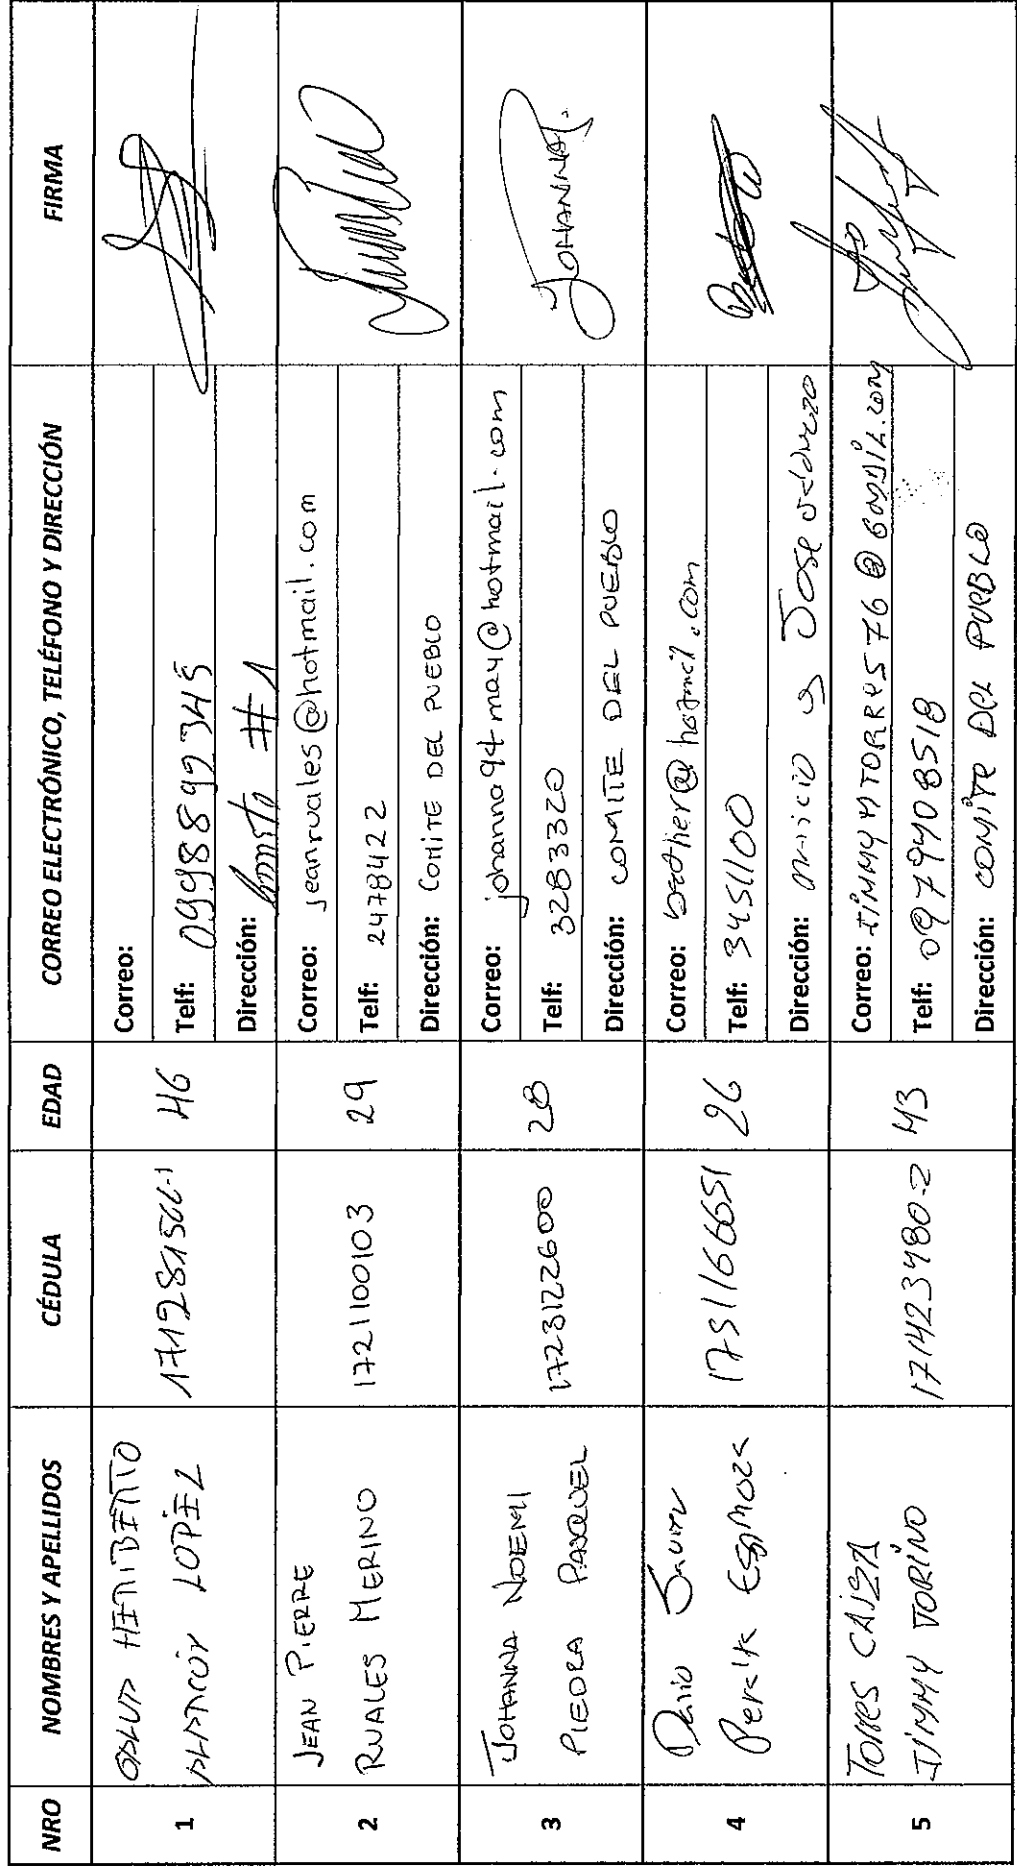 NRO NOMBRES Y APELLIDOS CÉDULA EDAD CORREO ELECTRÓNICO, TELÉFONO Y DIRECCIÓN FIRMA
1
LOPEZ
171281566-1
46
Correo:
Telf: 0998892345
Dirección: #1
2
JEAN PIERRE
RUALES MERINO
1721100103
29
Correo: jeanruales@hotmail.com
Telf: 2478422
Dirección: COMITE DEL PUEBLO
3
JOHANNA NOEMI
PIEDRA PASQUEL
1723122600
28
Correo: johanna94may@hotmail.com
Telf: 3283320
Dirección: COMITE DEL PUEBLO
JOHANNA
4
Dario Javier
Peralta Espinoza
1751166651
26
Correo: @hotmail.com
Telf: 3451100
Dirección: y Jose
5
TORRES CAIZA
JIMMY
171423480-2
43
Correo: JIMMYYTORRES76@GMAIL.COM
Telf: 0979408518
Dirección: COMITE DEL PUEBLO